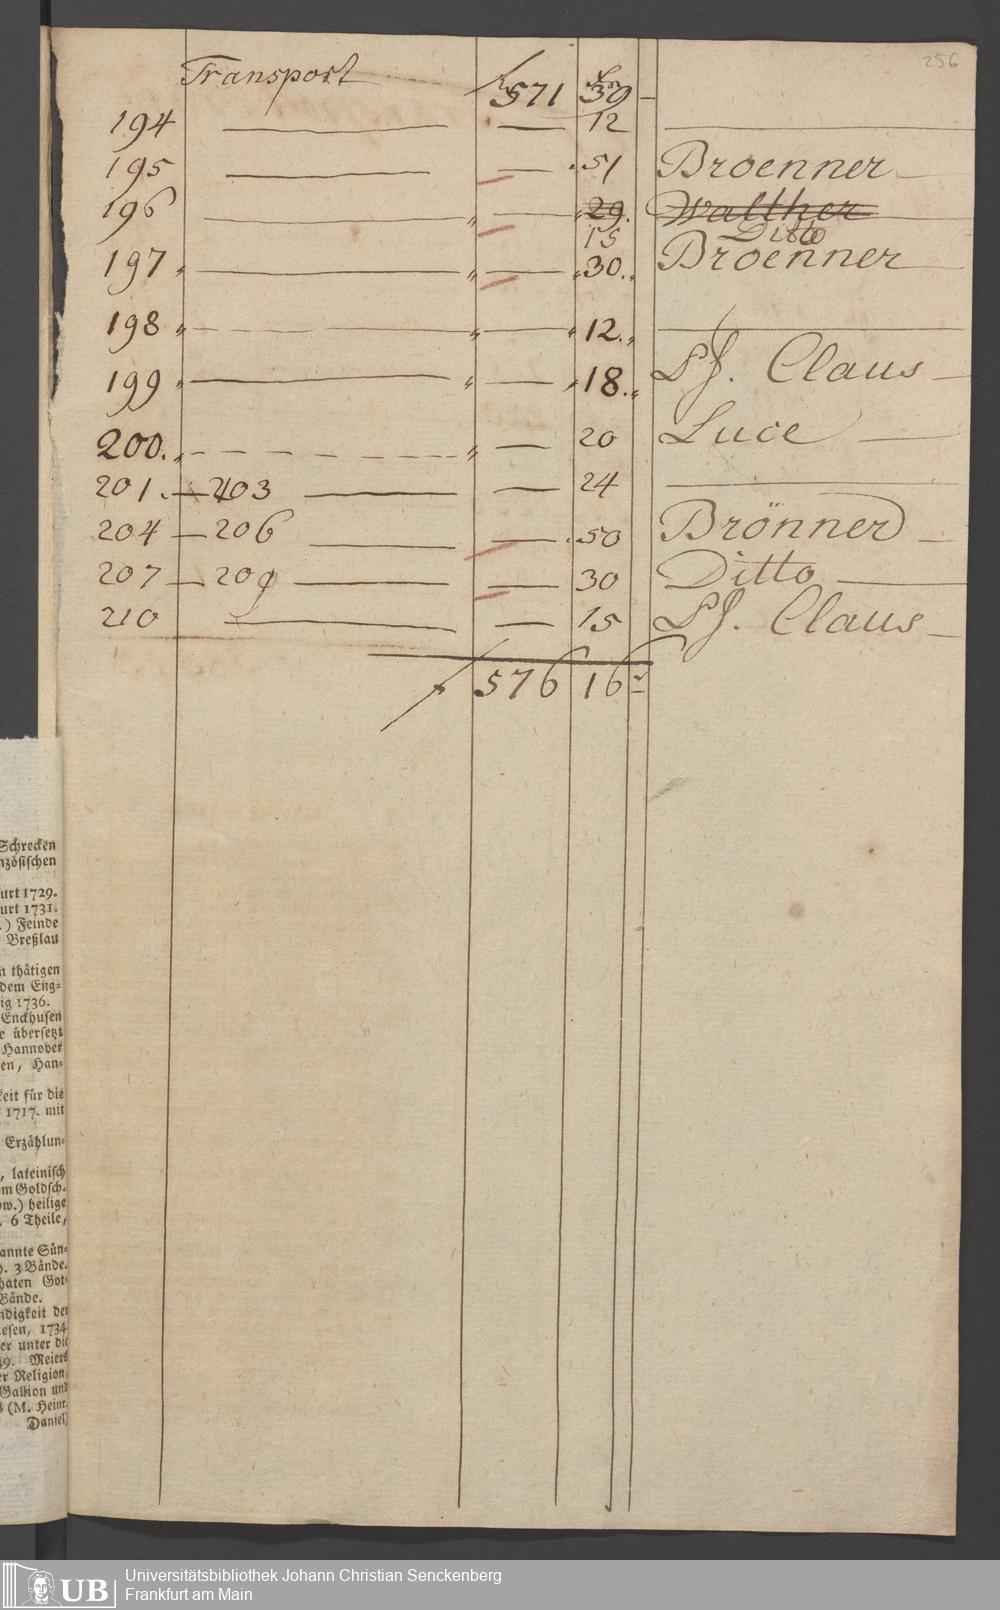 256
Transport 571 39 —
194 — — 12 —
195 — — 51 Broenner —
196 — — 29. Walther
15 Ditto
197 — — 30. Broenner —
198 — — 12. —
199 — — 18. Claus —
200. — — 20 Luce —
201. — 203 — — 24 —
204 — 206 — — 50 Brönner —
207 — 209 — — 30 Ditto —
210 — — 15 Claus —
576 16
Schrecken
nzösischen
urt 1729.
urt 1731.
.) Feinde
Breßlau
n thätigen
dem Eng=
ig 1736.
Enckhusen
e übersetzt
Hannover
en, Han=
keit für die
1717. mit
Erzählun=
, lateinisch
m Goldsch.
ow.) heilige
. 6 Theile,
annte Sün=
. 3 Bände.
haten Got=
Bände.
ndigkeit der
esen, 1734
er unter die
49. Meiers
er Religion
Galbion und
s (M. Heinr.
Daniel)
UB Universitätsbibliothek Johann Christian Senckenberg
Frankfurt am Main